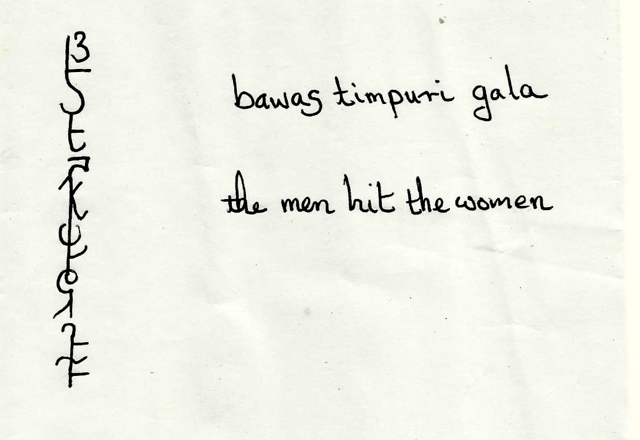 bawas timpuri gala
the men hit the women